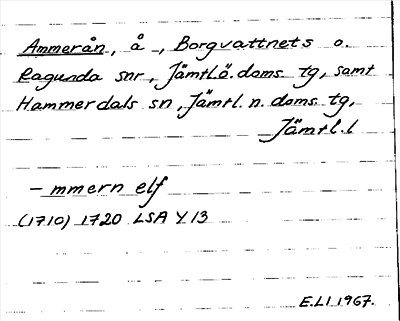 Ammerån, å, Borgvattnets o.
Ragunda snr, Jämtl.ö. doms. tg, samt
Hammerdals sn, Jämtl. n. doms. tg,
Jämtl. l
- mmern elf
(1710) 1720 LSA Y 13
E.LI 1967.